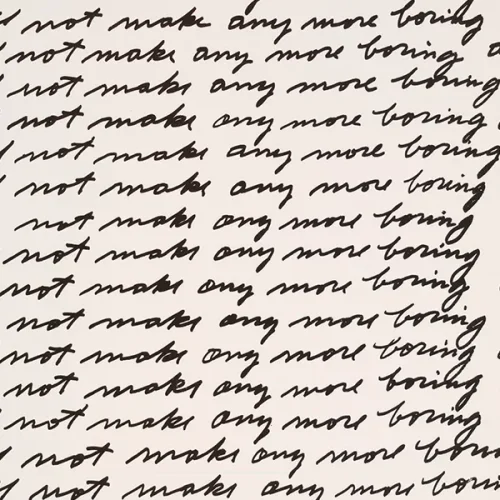 not make any more boring
not make any more boring
not make any more boring
not make any more boring
not make any more boring
not make any more boring
not make any more boring
not make any more boring
not make any more boring
not make any more boring
not make any more boring
not make any more boring
not make any more boring
not make any more
not make any more